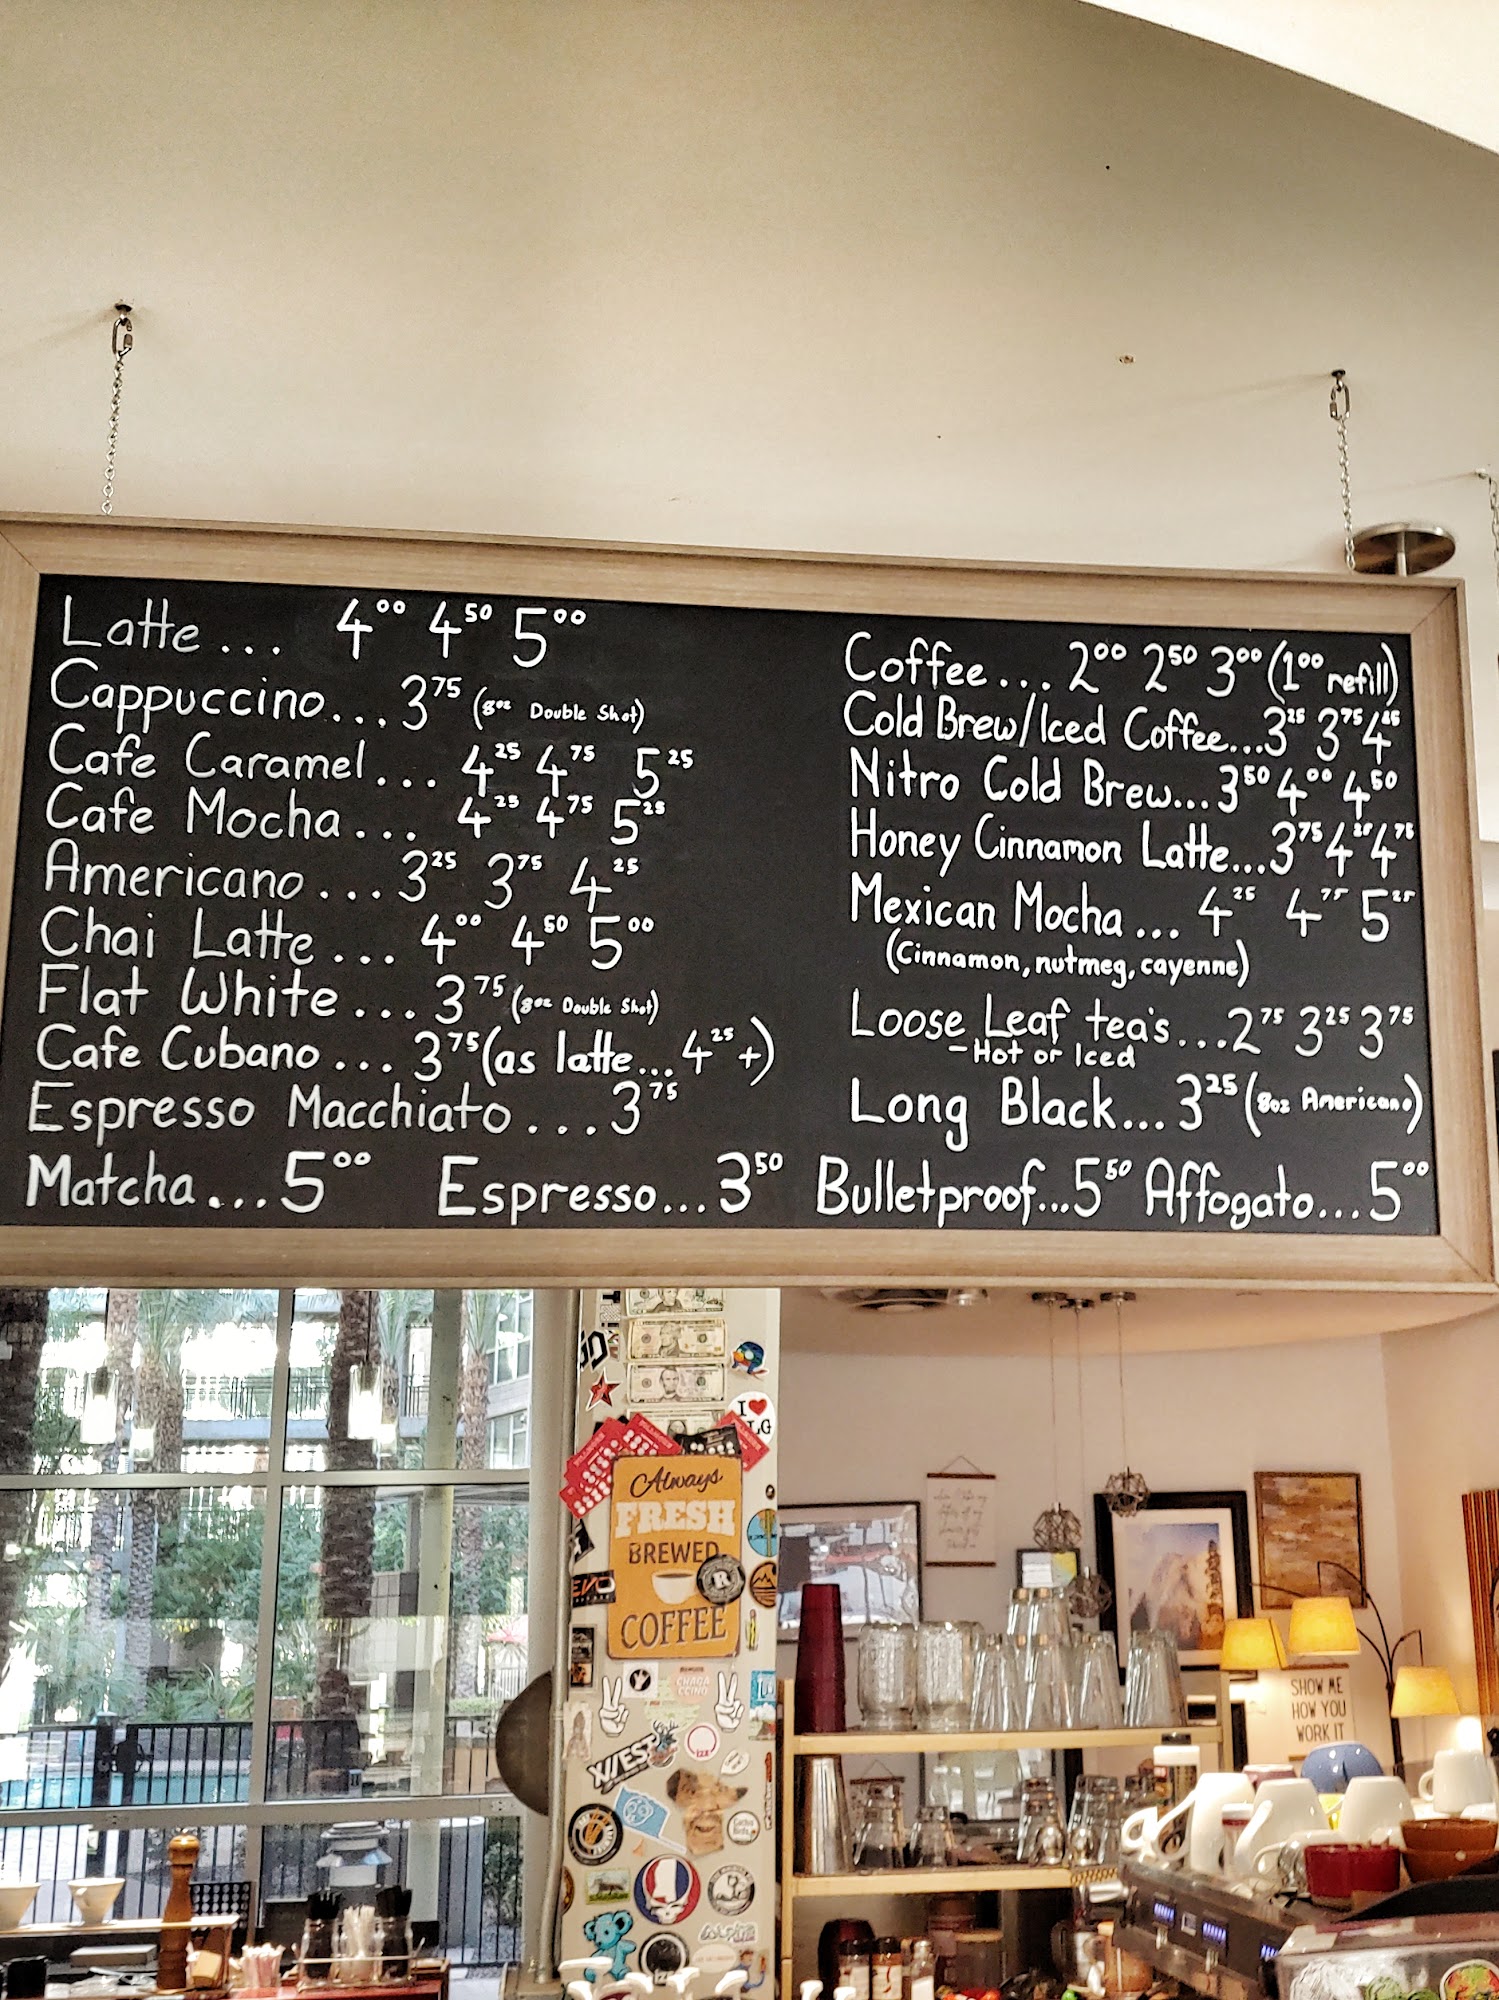 Latte... 4⁰⁰ 4⁵⁰ 5⁰⁰
Cappuccino...3⁷⁵ (8oz Double Shot)
Cafe Caramel... 4²⁵ 4⁷⁵ 5²⁵
Cafe Mocha... 4²⁵ 4⁷⁵ 5²⁵
Americano...3²⁵ 3⁷⁵ 4²⁵
Chai Latte... 4⁰⁰ 4⁵⁰ 5⁰⁰
Flat White...3⁷⁵ (8oz Double Shot)
Cafe Cubano...3⁷⁵ (as latte...4²⁵+)
Espresso Macchiato...3⁷⁵
Matcha...5⁰⁰ Espresso...3⁵⁰
Coffee...2⁰⁰ 2⁵⁰ 3⁰⁰ (1⁰⁰ refill)
Cold Brew/Iced Coffee...3²⁵ 3⁷⁵ 4²⁵
Nitro Cold Brew...3⁵⁰ 4⁰⁰ 4⁵⁰
Honey Cinnamon Latte...3⁷⁵ 4²⁵ 4⁷⁵
Mexican Mocha... 4²⁵ 4⁷⁵ 5²⁵
(Cinnamon, nutmeg, cayenne)
Loose Leaf tea's...2⁷⁵ 3²⁵ 3⁷⁵
- Hot or Iced
Long Black...3²⁵ (8oz Americano)
Bulletproof...5⁵⁰ Affogato...5⁰⁰
I ❤
LG
Always
FRESH
BREWED
COFFEE
R
EVO
CHAGA
CCINO
XWEST
izze
SHOW ME
HOW YOU
WORK IT